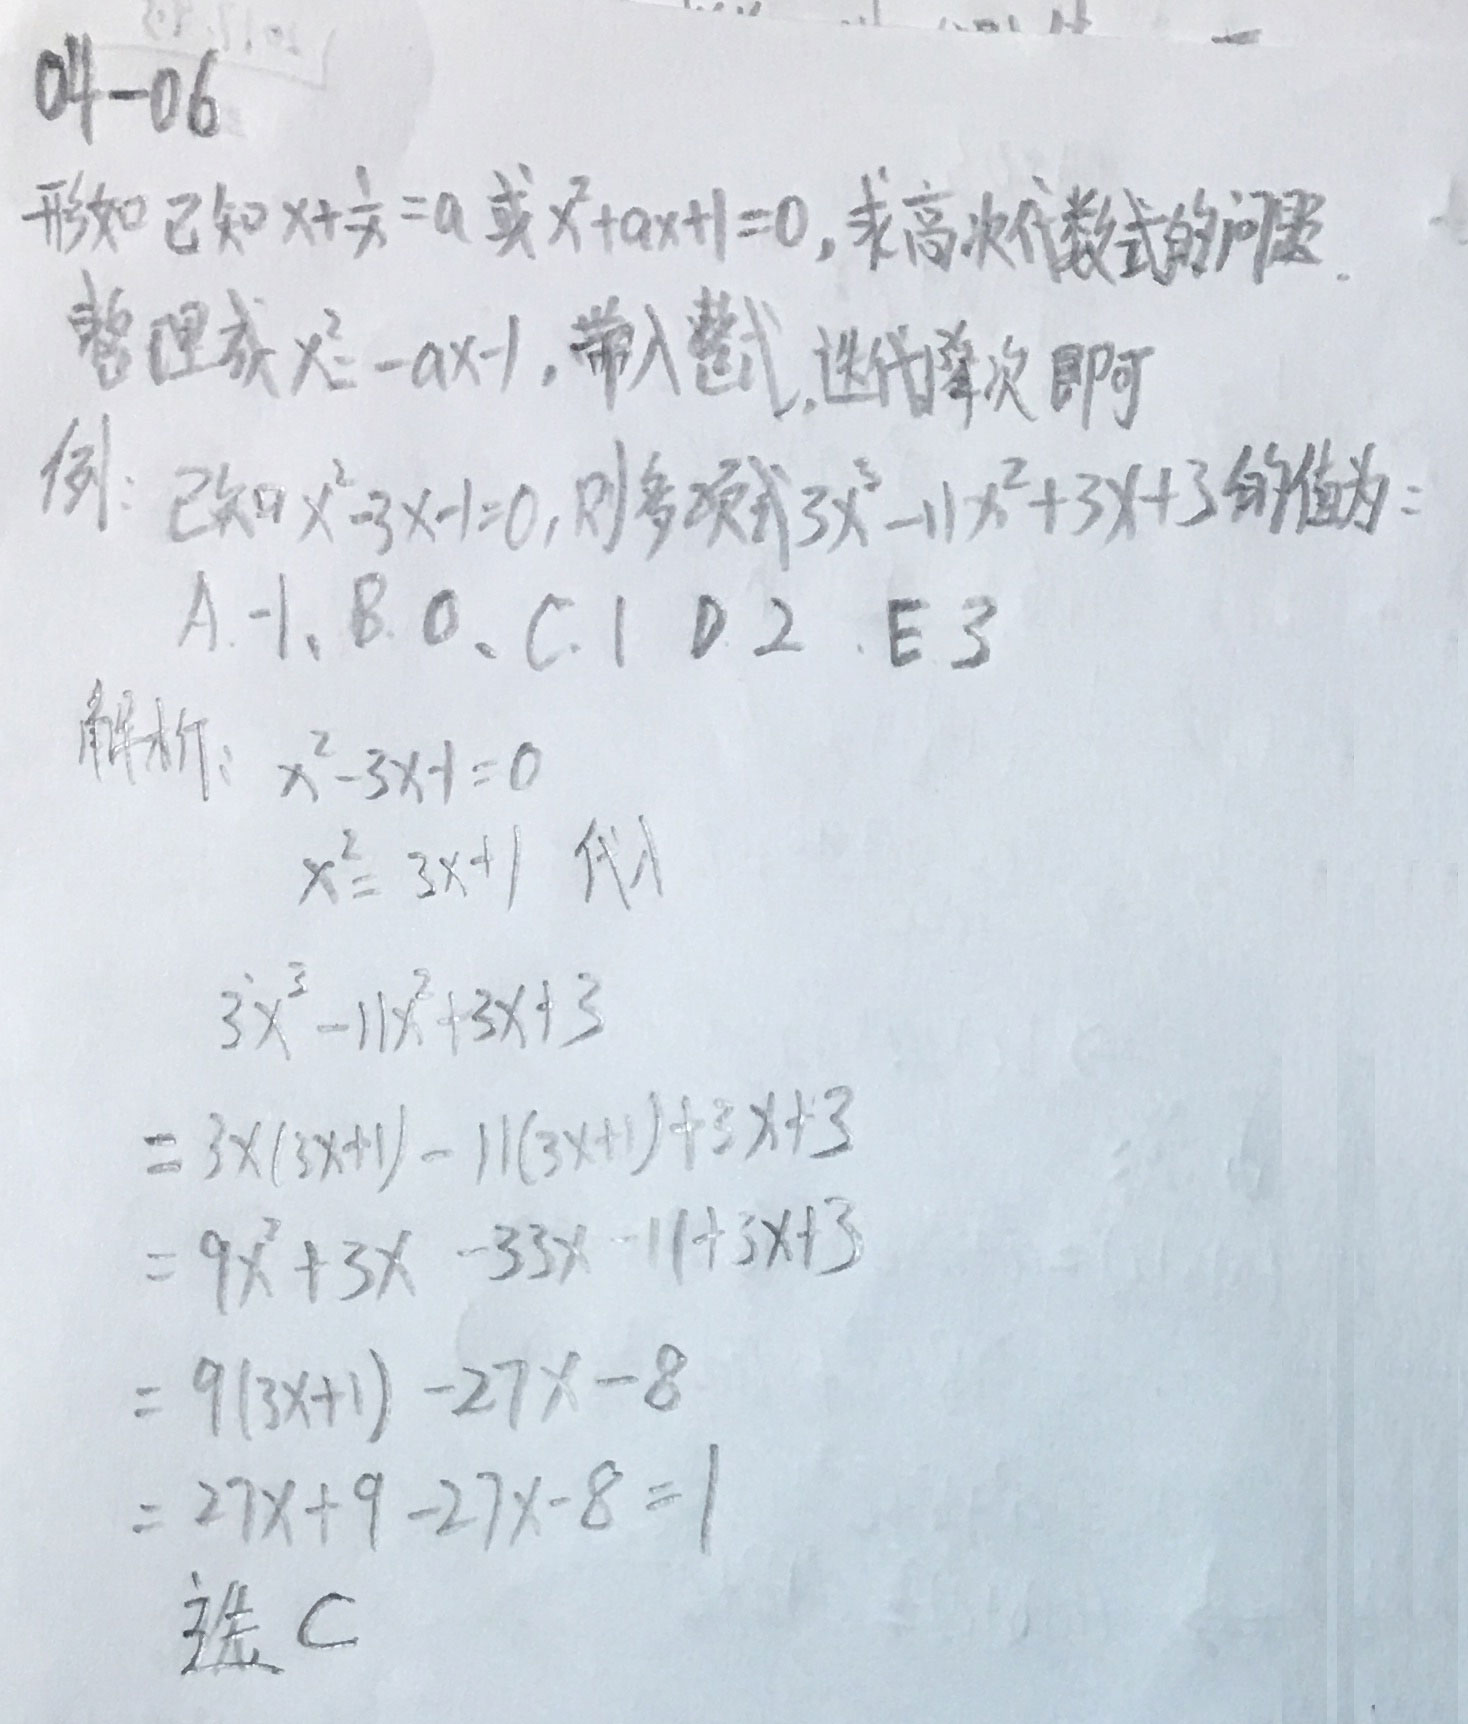 04-06
形如已知x+1/x=a或x²+ax+1=0,求高次代数式的问题.
整理成x²=-ax-1,带入整式,迭代降次即可
例:已知x²-3x-1=0,则多项式3x³-11x²+3x+3的值为:
A.-1、B.0、C.1 D.2 .E.3
解析:x²-3x-1=0
x²=3x+1 代入
3x³-11x²+3x+3
=3x(3x+1)-11(3x+1)+3x+3
=9x²+3x-33x-11+3x+3
=9(3x+1)-27x-8
=27x+9-27x-8=1
选C